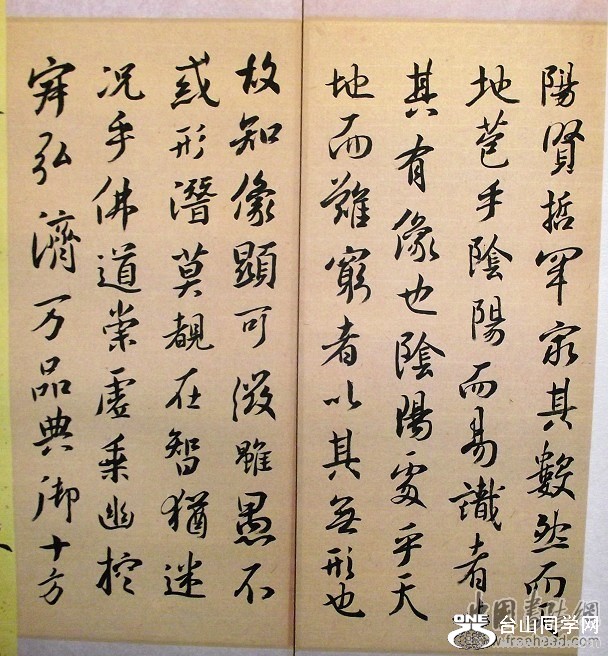 陽賢哲罕窮其數然而
地苞乎陰陽而易識者
其有像也陰陽處乎天
地而難窮者以其無形也
故知像顯可徵雖愚不
惑形潛莫覩在智猶迷
况乎佛道崇虛乘幽控
寂弘濟万品典御十方
ONE
台山同学网